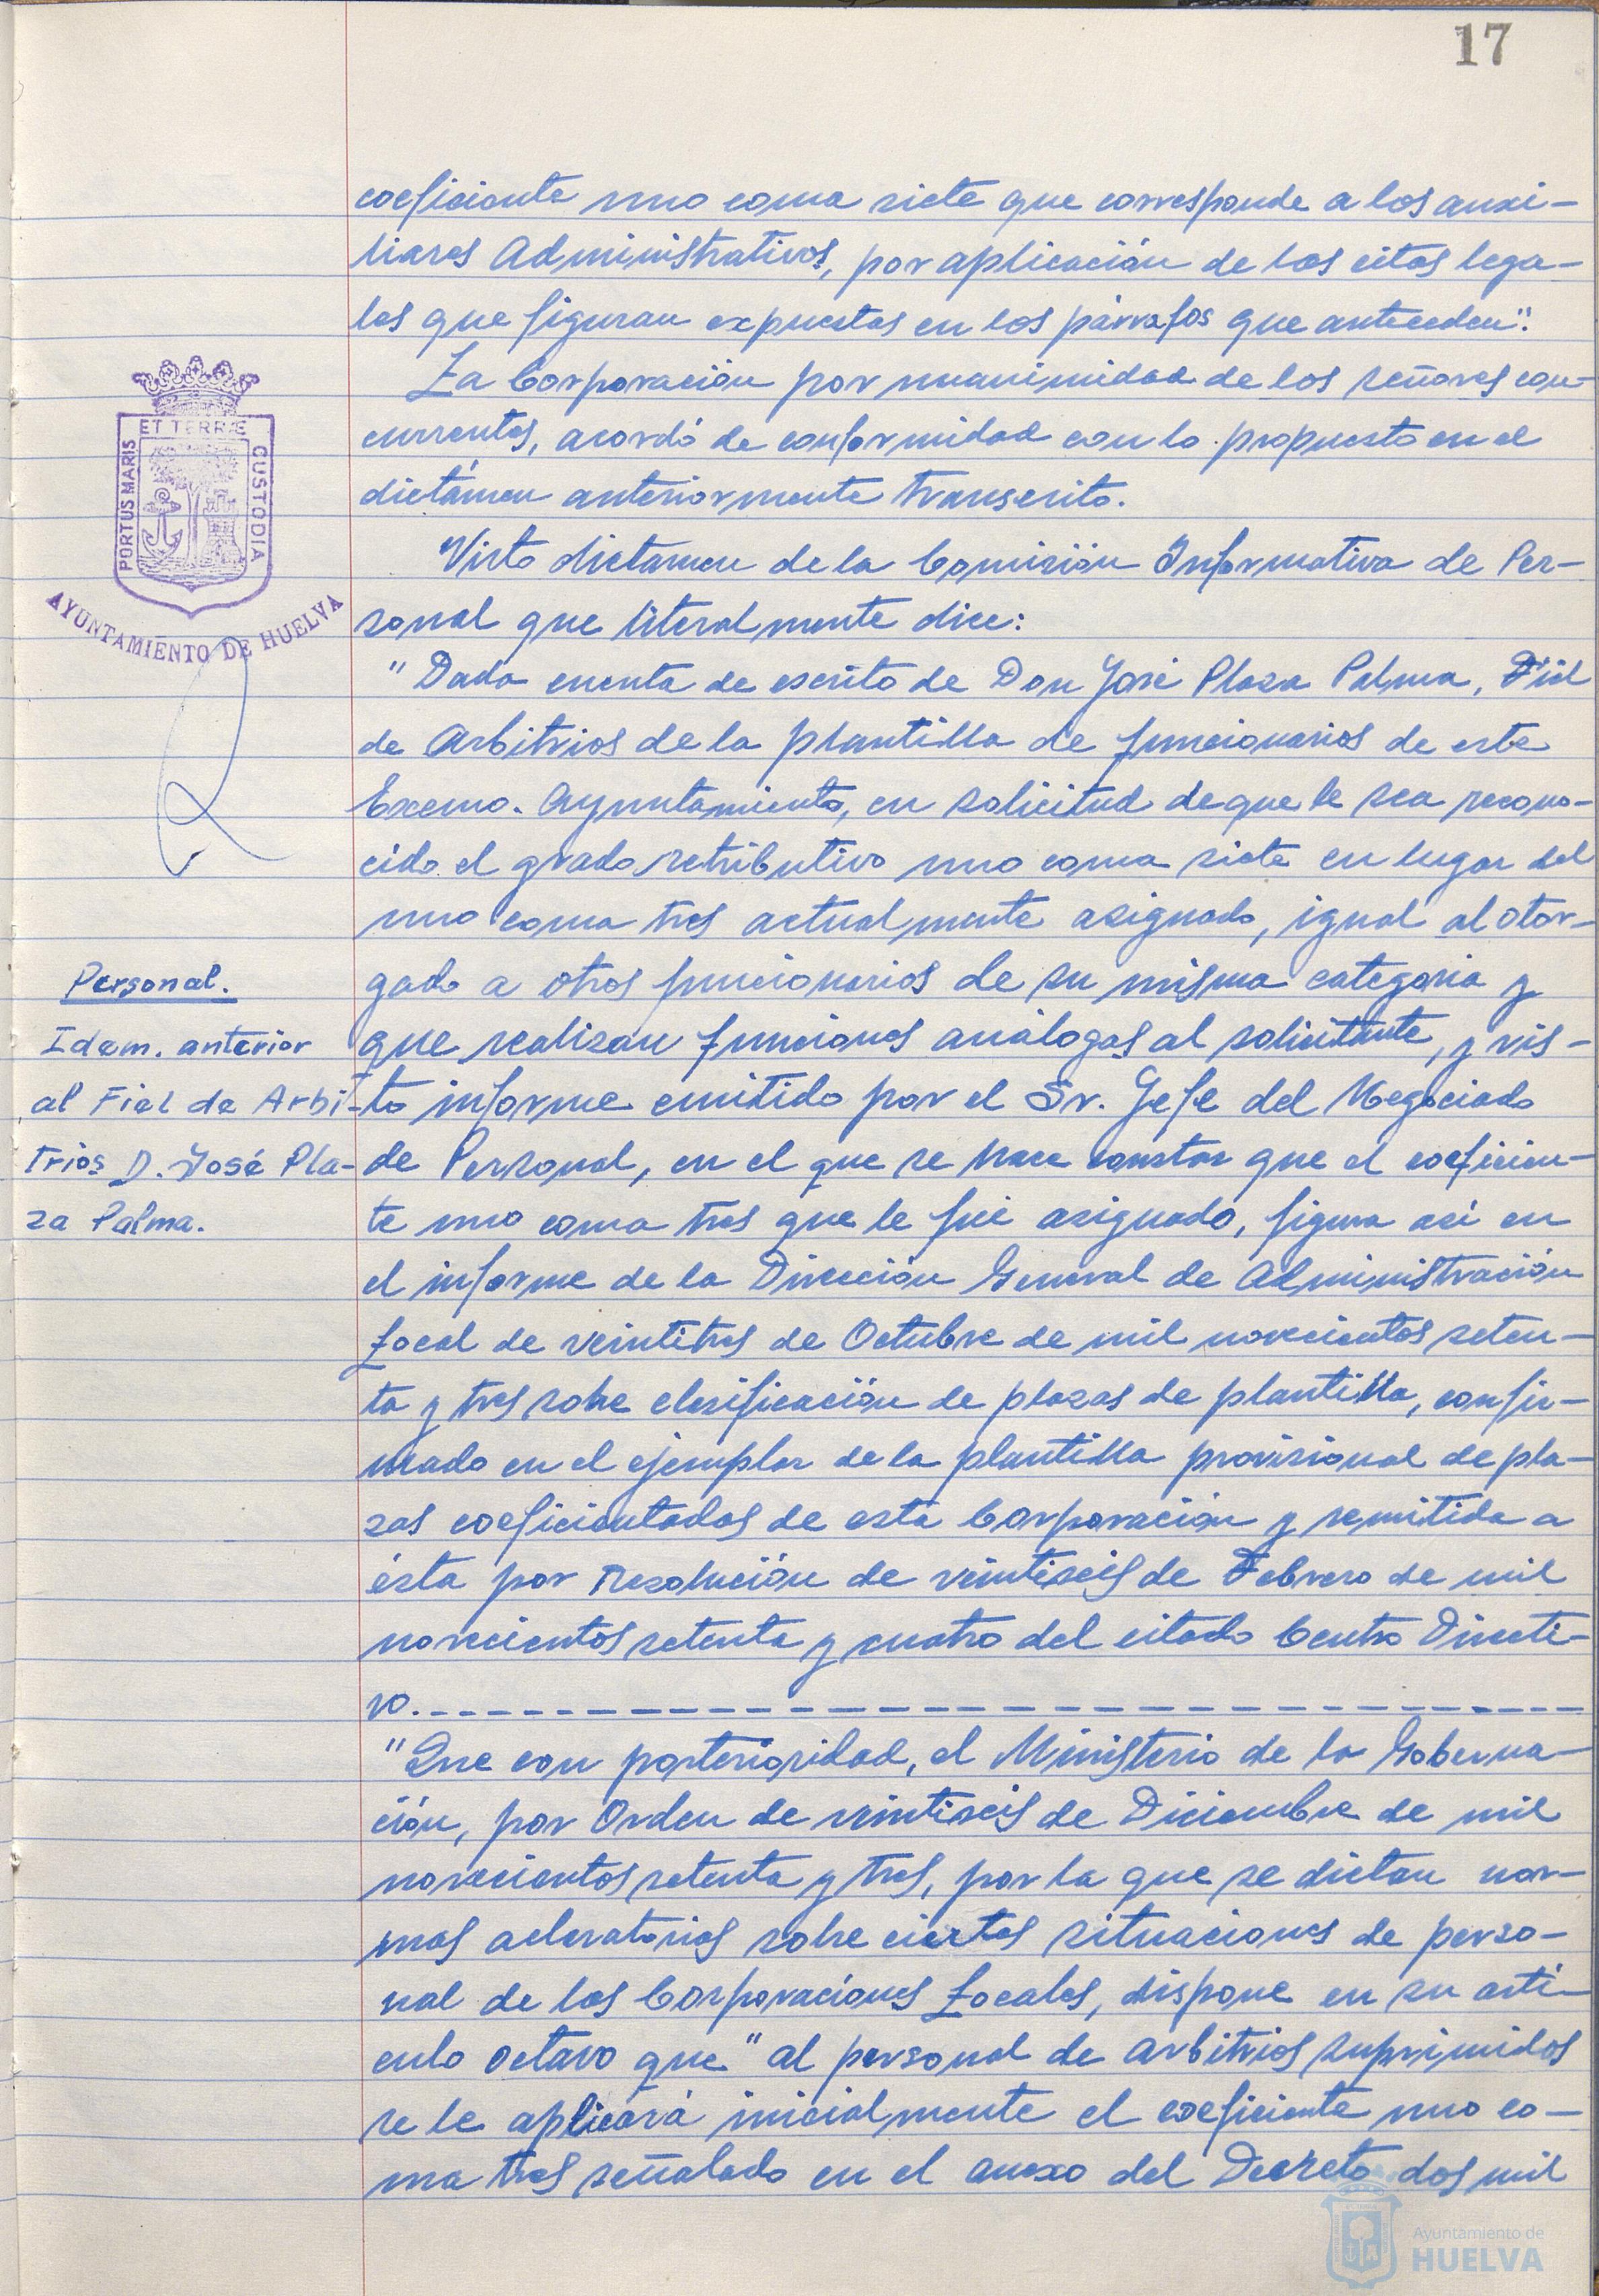 17
coeficiente uno coma siete que corresponde a los auxi-
liares Administrativos, por aplicación de las citas lega-
les que figuran expuestas en los párrafos que anteceden".
La Corporación por unanimidad de los señores con-
currentes, acordó de conformidad con lo propuesto en el
dictámen anteriormente transcrito.
Visto dictamen de la Comisión Informativa de Per-
sonal que literalmente dice:
"Dada cuenta de escrito de Don José Plaza Palma, Fiel
de Arbitrios de la plantilla de funcionarios de este
Excmo. Ayuntamiento, en solicitud de que le sea recono-
cido el grado retributivo uno coma siete en lugar del
uno coma tres actualmente asignado, igual al otor-
gado a otros funcionarios de su misma categoria y
que realizan funciones análogas al solicitante, y vis-
to informe emitido por el Sr. Jefe del Negociado
de Personal, en el que se hace constar que el coeficien-
te uno coma tres que le fué asignado, figura así en
el informe de la Dirección General de Administración
Local de veintitres de Octubre de mil novecientos seten-
ta y tres sobre clasificación de plazas de plantilla, confir-
mado en el ejemplar de la plantilla provisional de pla-
zas coeficientadas de esta Corporación y remitida a
ésta por Resolución de veintiseis de Febrero de mil
novecientos setenta y cuatro del citado Centro Directi-
vo.
"Que con posterioridad, el Ministerio de la Goberna-
ción, por Orden de veintiseis de Diciembre de mil
novecientos setenta y tres, por la que se dictan nor-
mas aclaratorias sobre ciertas situaciones de perso-
nal de las Corporaciones Locales, dispone en su artí-
culo octavo que "al personal de arbitrios suprimidos
se le aplicará inicialmente el coeficiente uno co-
ma tres señalado en el anexo del Decreto dos mil
PORTUS MARIS
ET TERRÆ
CUSTODIA
AYUNTAMIENTO DE HUELVA
Personal.
Idem. anterior
al Fiel de Arbi-
trios D. José Pla-
za Palma.
Ayuntamiento de
HUELVA